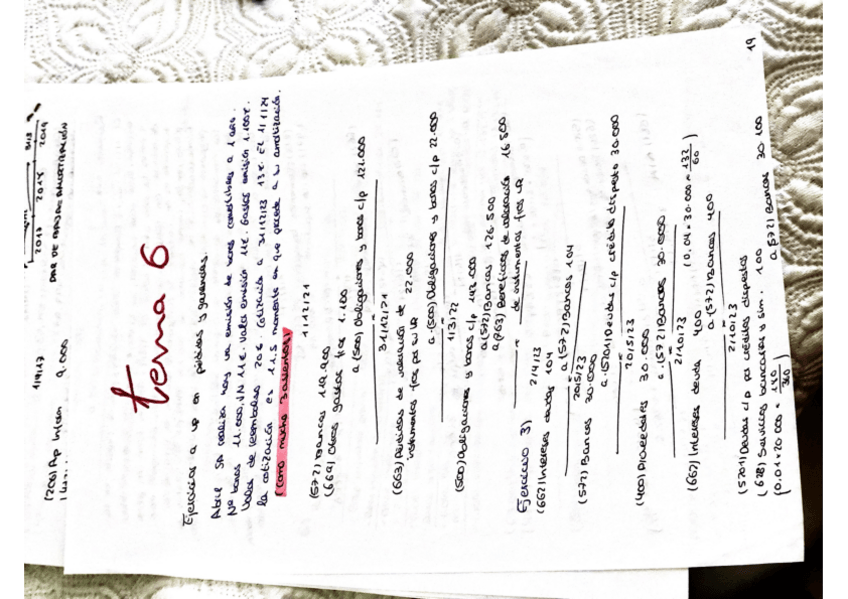 1/9/17
(206) Ap Infor 9.000
2017 2018 2019
tema 6
Ejercicios a vr en pérdidas y ganancias.
Abril SA realiza hoy un emisión de bonos convertibles a 1 año.
Nº bonos 11.000, VN 11€. Valor emisión 11€. Gastos emisión 1.100€.
Valor de reembolso 20€. Cotización a 31/12/23 13€. El 1/1/24
la cotización es 11.5 momento en que procede a su amortización.
(como mucho 3 asientos)
1/12/21
(572) Bancos 119.900
(669) Otros gastos fros 1.100
a (500) Obligaciones y bonos c/p 121.000
31/12/21
(663) Pérdidas de valoración de
instrumentos fros por su VR 22.000
a (500) Obligaciones y bonos c/p 22.000
1/3/22
(500) Obligaciones y bonos c/p 143.000
a (572) Bancos 126.500
a (763) Beneficios de valoración
de instrumentos fros VR 16.500
Ejercicio 3)
2/4/23
(662) Intereses deudas 104
a (572) Bancos 104
20/5/23
(572) Bancos 30.000
a (5201) Deudas c/p crédito dispuesto 30.000
20/5/23
(400) Proveedores 30.000
a (572) Bancos 30.000
2/10/23
(662) Intereses deuda 400
a (572) Bancos 400
2/10/23
(5201) Deudas c/p por créditos dispuestos
(626) Servicios bancarios y sim. 100
a (572) Bancos 30.100
19